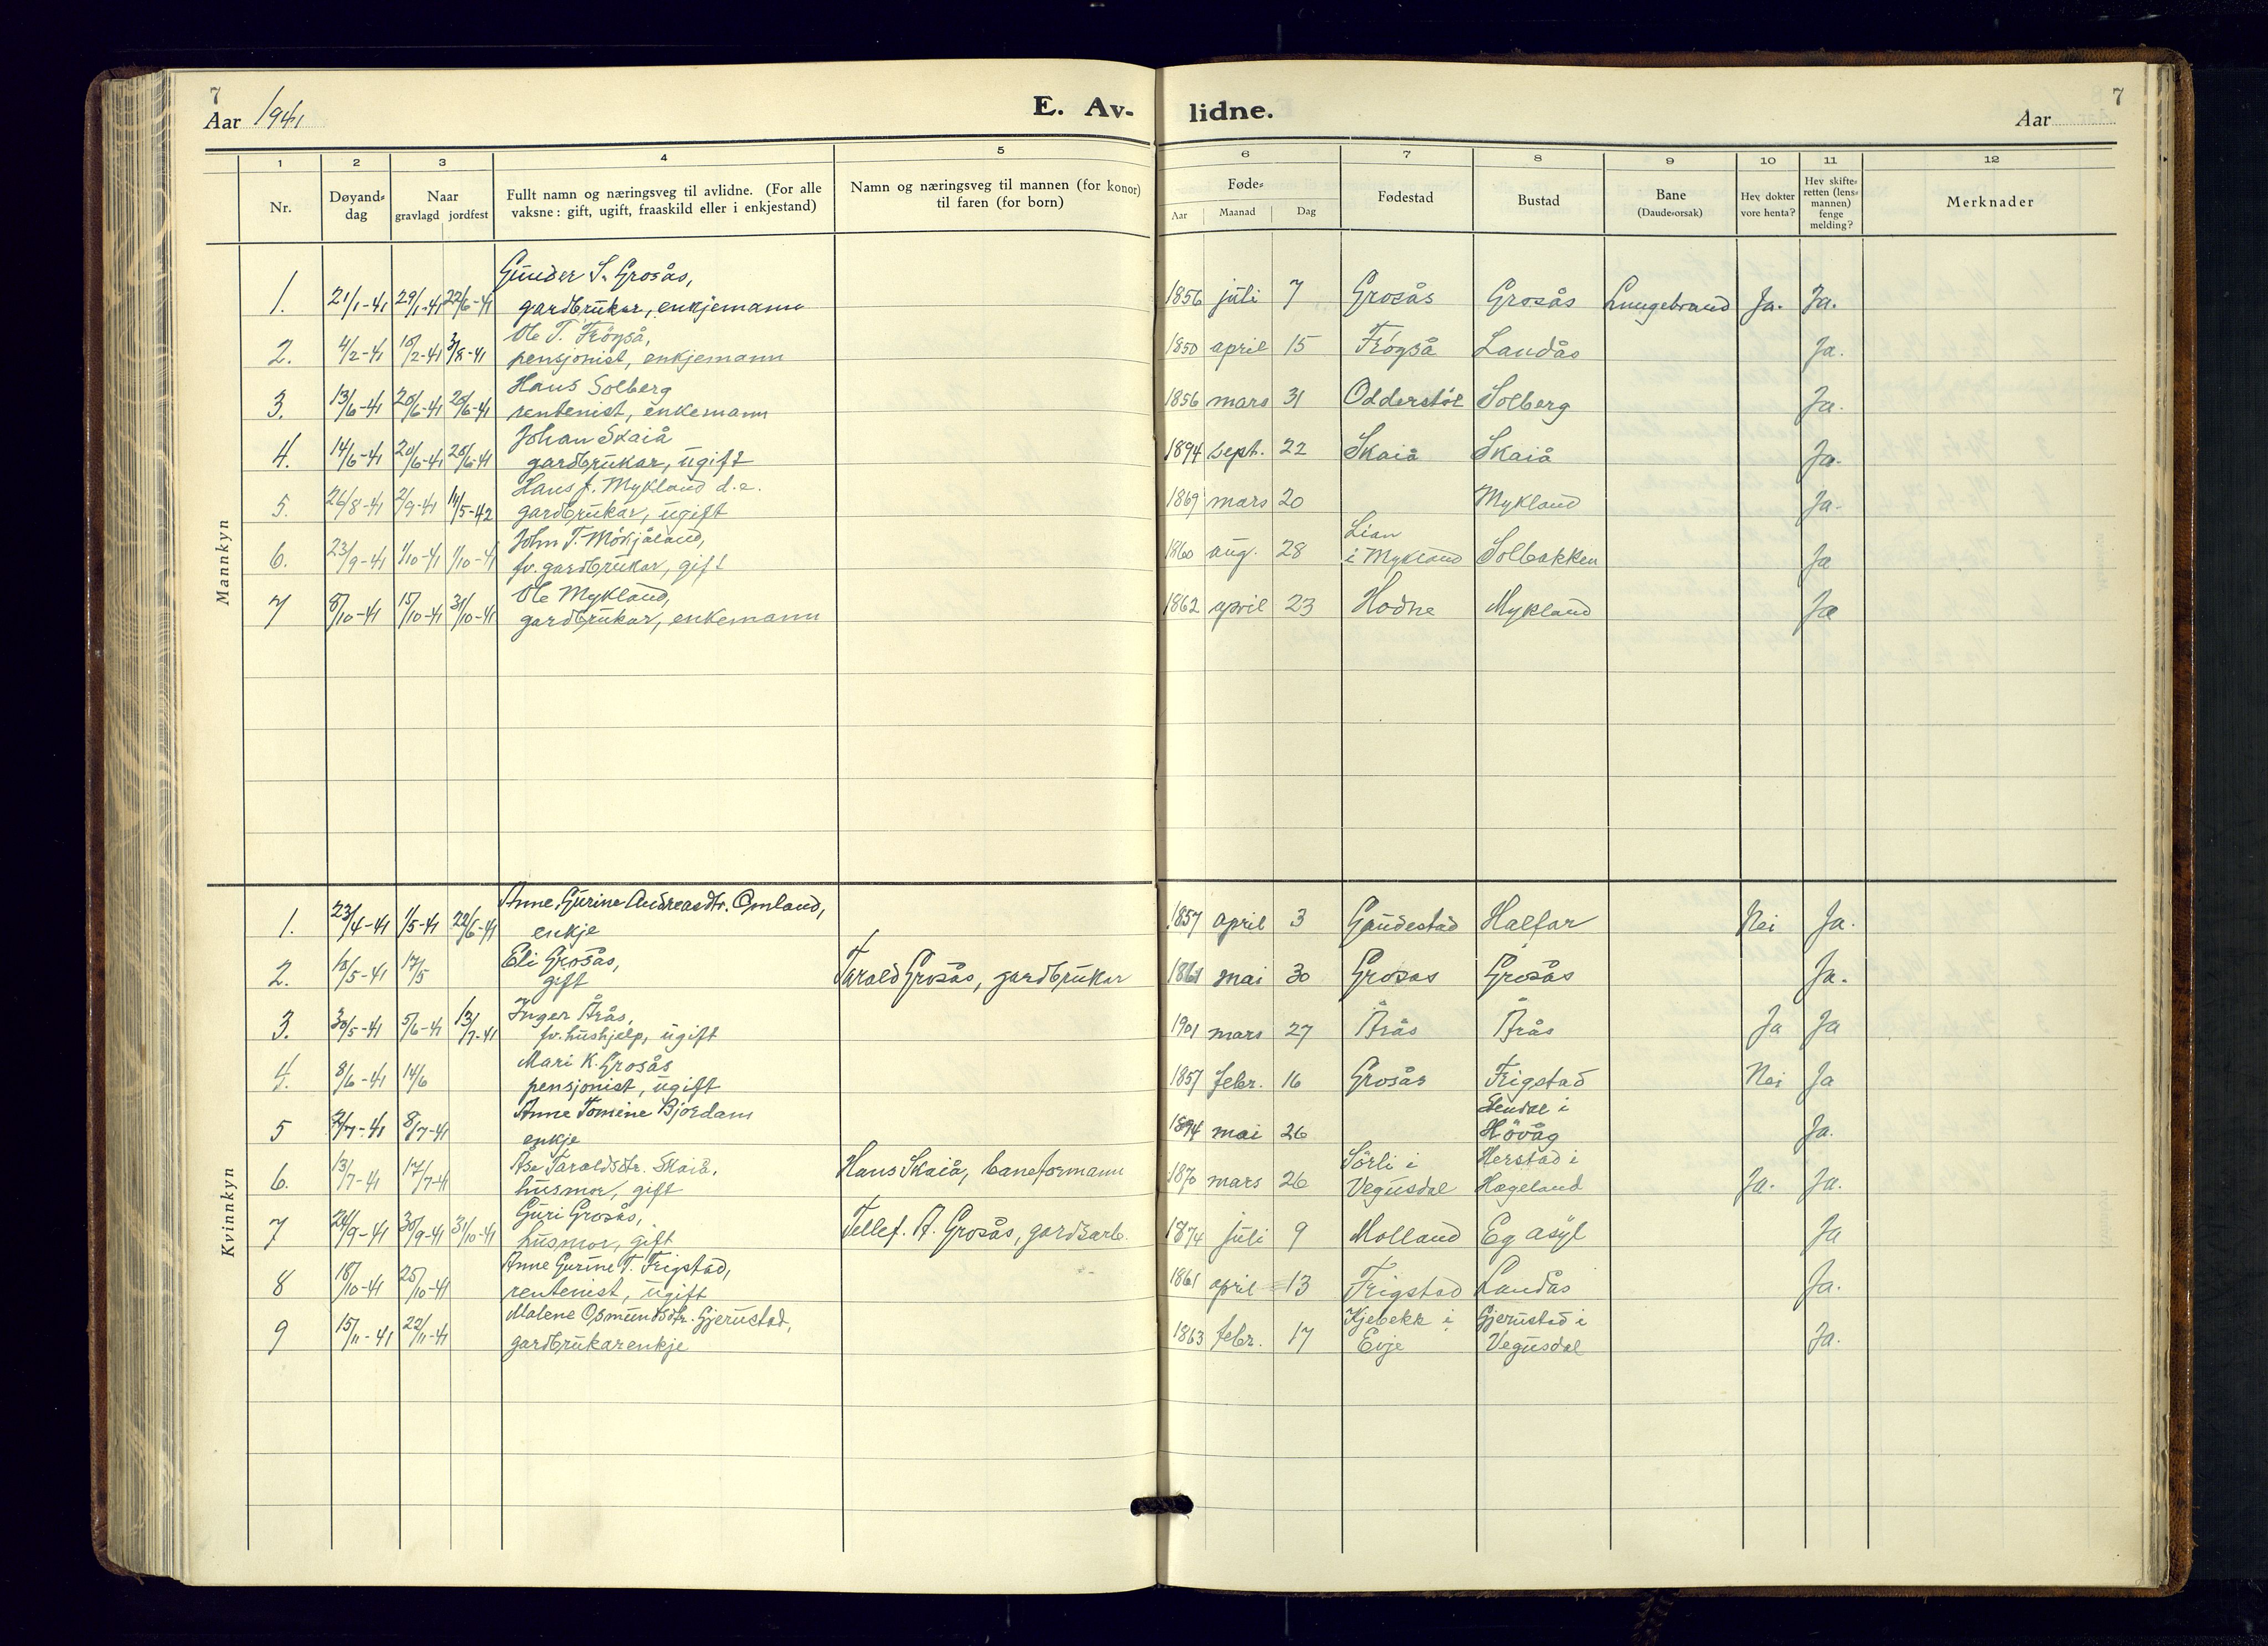 7
Aar 1941
E. Av-
lidne.
7
Aar
1 2 3 4 5 6 7 8 9 10 11 12
Nr.
Døyand-
dag
Naar
gravlagd jordfest
Fullt namn og næringsveg til avlidne. (For alle
vaksne: gift, ugift, fraaskild eller i enkjestand)
Namn og næringsveg til mannen (for konor)
til faren (for born)
Føde-
Aar Maanad Dag
Fødestad
Bustad
Bane
(Daude-orsak)
Hev dokter
vore henta?
Hev skifte-
retten (lens-
mannen)
fenge
melding?
Merknader
Mannkyn
Gunder S. Grosås,
1. 21/1-41 29/1-41 22/6-41 gardbrukar, enkjemann 1856 juli 7 Grosås Grosås Lungebrand Ja. Ja.
Ole T. Frøyså,
2. 4/2-41 10/2-41 3/8-41 pensjonist, enkjemann 1850 april 15 Frøyså Landås Ja.
Hans Solberg
3. 13/6-41 20/6-41 20/6-41 rentenist, enkemann 1856 mars 31 Odderstøl Solberg Ja.
Johan Skaiå
4. 14/6-41 20/6-41 20/6-41 gardbrukar, ugift 1894 sept. 22 Skaiå Skaiå Ja.
Hans J. Mykland d.e.
5. 26/8-41 2/9-41 14/5-42 gardbrukar, ugift 1869 mars 20 Mykland Ja.
John T. Mörjåland, Lian
6. 23/9-41 1/10-41 1/10-41 fv. gardbrukar, gift 1860 aug. 28 i Mykland Solbakken Ja
Ole Mykland,
7 8/10-41 15/10-41 31/10-41 gardbrukar, enkemann 1862 april 23 Hodne Mykland Ja
Kvinnkyn
Anne Gurine Andreasdtr. Omland,
1. 23/4-41 1/5-41 22/6-41 enkje 1857 april 3 Gaudestad Halfar Nei Ja.
Eli Grosås,
2. 13/5-41 17/5 gift Tarald Grosås, gardbrukar 1861 mai 30 Grosås Grosås Ja.
Inger Årås,
3. 30/5-41 5/6-41 13/7-41 fv. hushjelp, ugift 1901 mars 27 Årås Årås Ja Ja
Mari K. Grosås
4. 8/6-41 14/6 pensjonist, ugift 1857 febr. 16 Grosås Frigstad Nei Ja
Anne Tomine Bjordam
5 2/7-41 8/7-41 enkje 1894 mai 26 Hövåg Ja.
Åse Taraldsdtr. Skaiå, Sörli i Herstad i
6. 13/7-41 17/7-41 husmor, gift Hans Skaiå, baneformann 1870 mars 26 Vegusdal Hægeland Ja. Ja.
Guri Grosås,
7 24/9-41 30/9-41 31/10-41 husmor, gift Tellef. A. Grosås, gardsarb. 1874 juli 9 Molland Eg asyl Ja
Anne Gurine T. Frigstad,
8 18/10-41 25/10-41 rentenist, ugift 1861 april 13 Frigstad Landås Ja.
Malene Osmundsdtr. Gjerustad, Kjebekk i Gjerustad i
9 15/11-41 22/11-41 gardbrukarenkje 1863 febr. 17 Evje Vegusdal Ja.